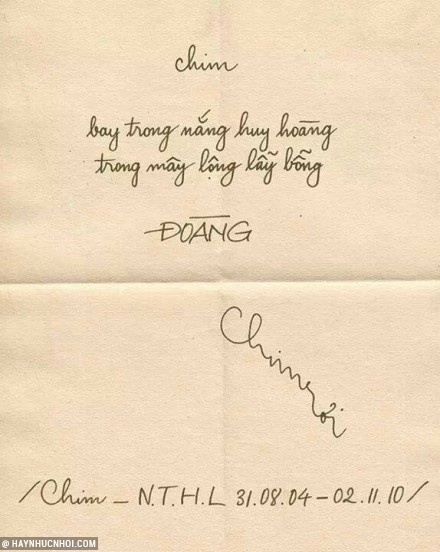 chim
bay trong nắng huy hoàng
trong mây lộng lẫy bỗng
ĐOÀNG
Chim rơi
/Chim – N.T.H.L 31.08.04 – 02.11.10/
@ HAYNHUCNHOI.COM